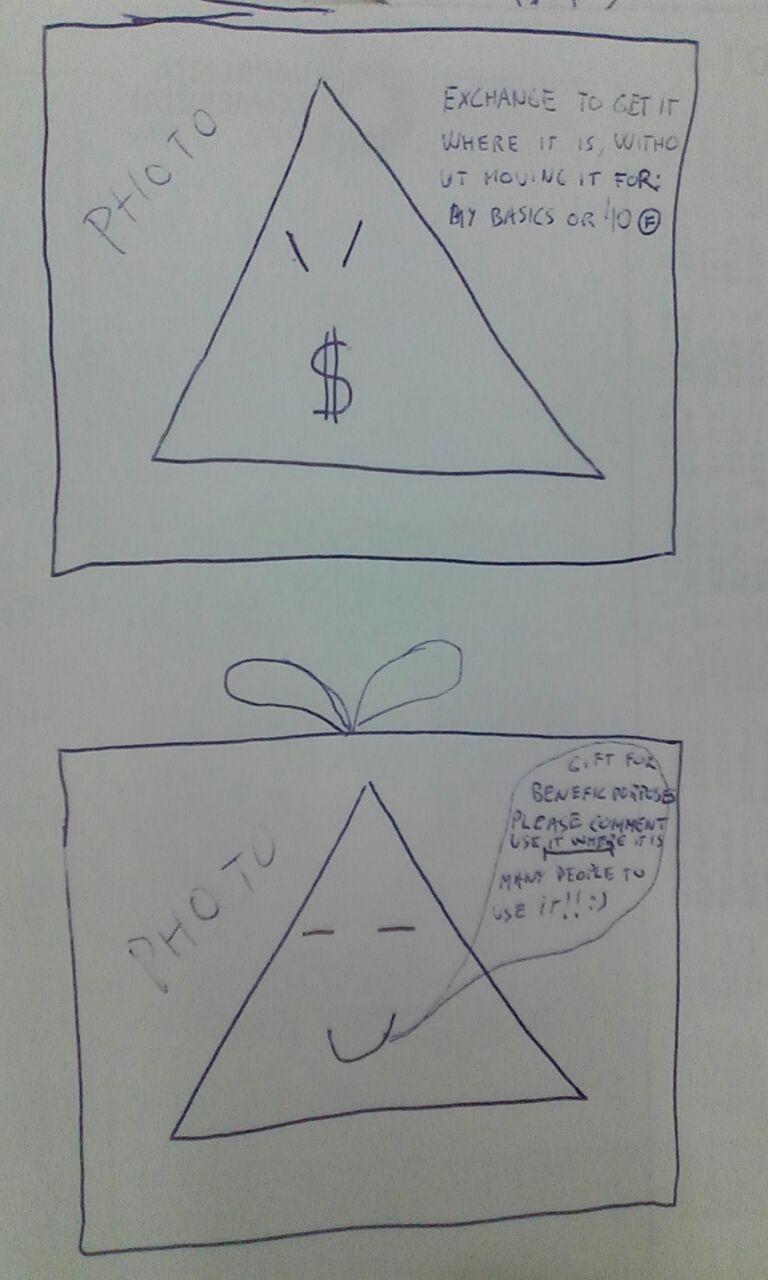 PHOTO
EXCHANGE TO GET IT
WHERE IT IS, WITHO
UT MOVING IT FOR:
MY BASICS OR 40 Ⓕ
$
PHOTO
GIFT FOR
BENEFIC PORPOSES
PLEASE COMMENT
USE IT WHERE IT IS
MANY PEOPLE TO
USE IT!! :)